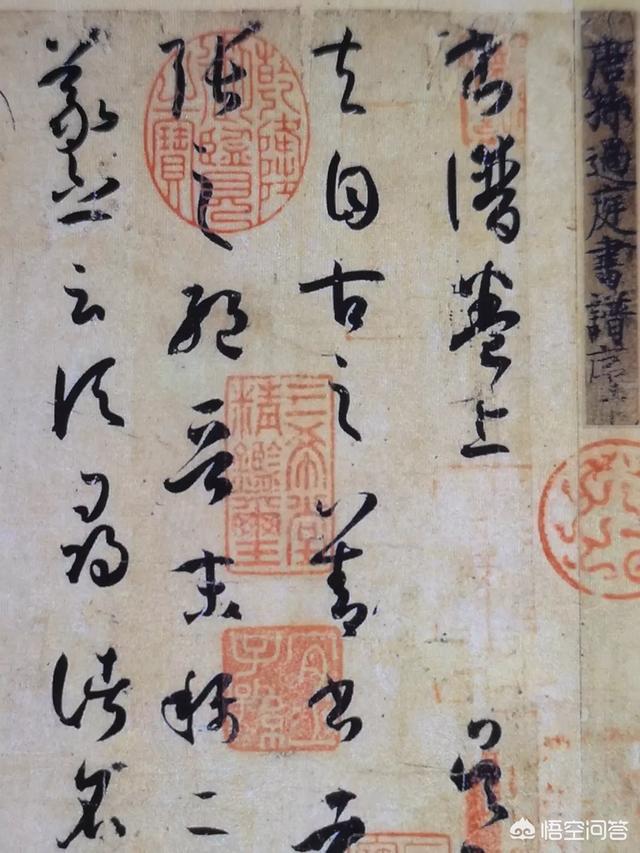 唐孫過庭書譜序
書譜卷上 吳
夫自古之善書者
張之絕晉末稱二
羲之云頃尋諸名
乾隆御覽之寶
三希堂精鑑璽
宜子孫
悟空问答